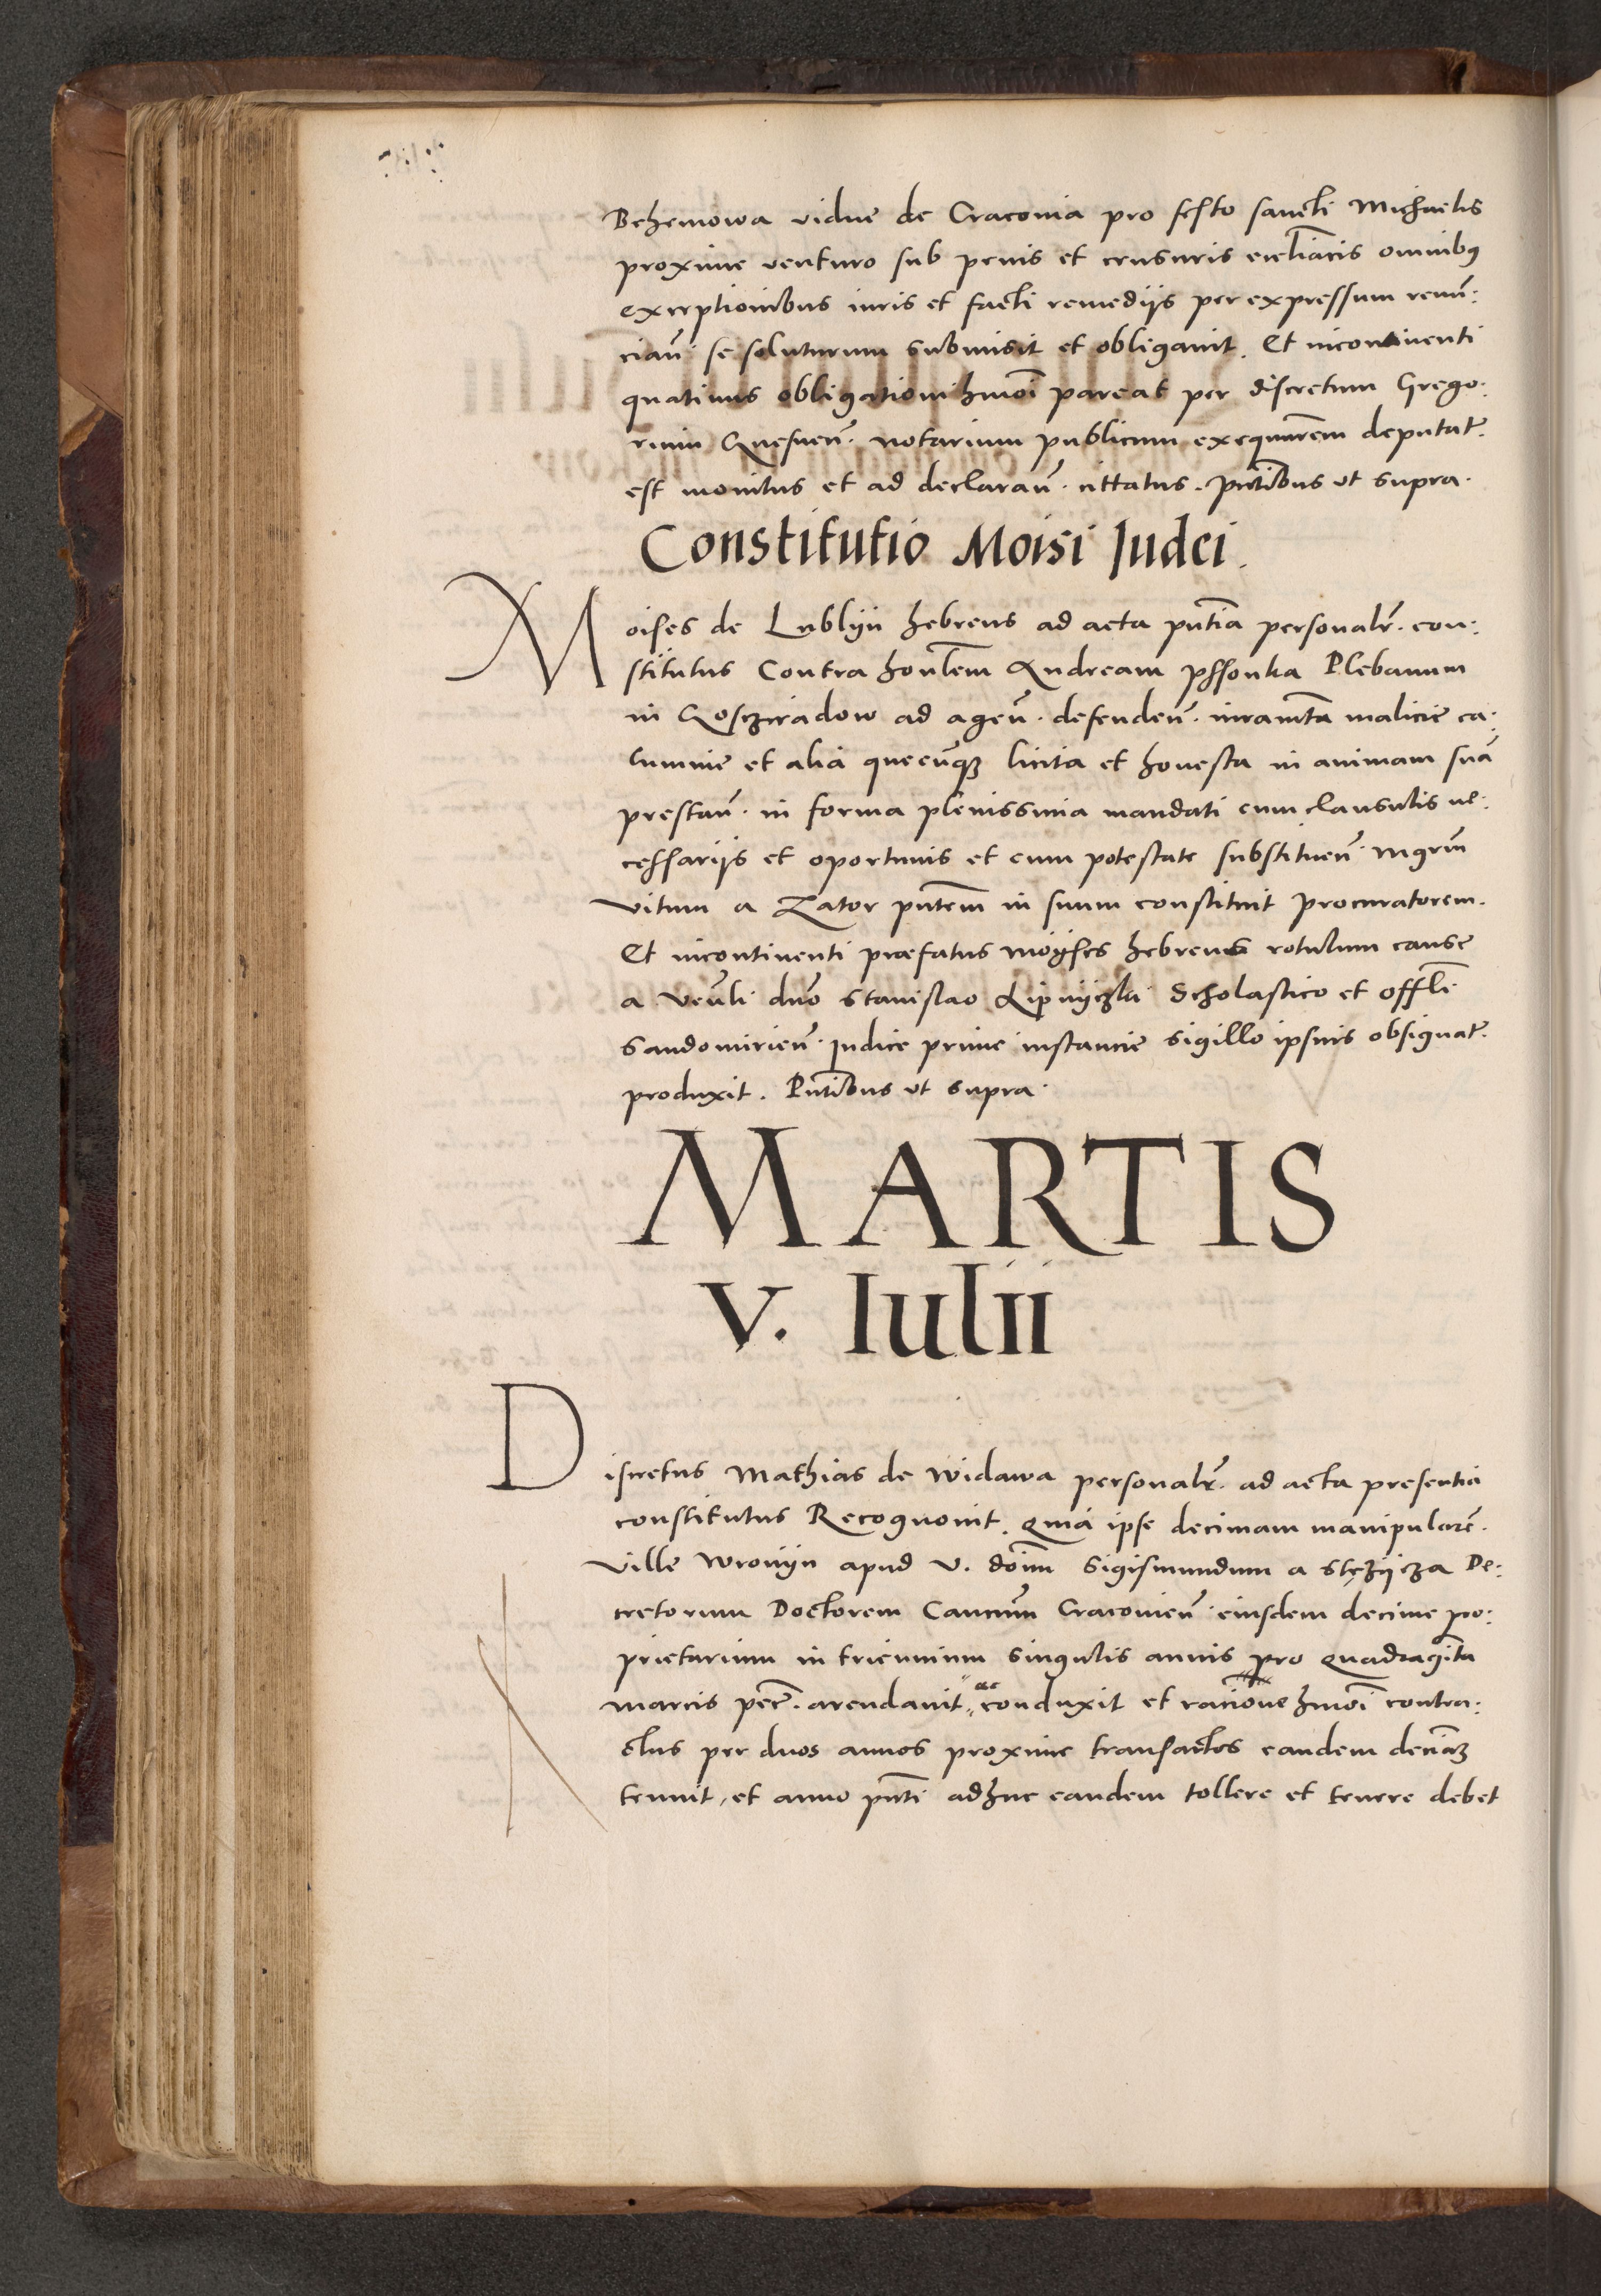 Behemowa vidue de Cracovia pro festo sancti Michaelis
proxime venturo sub penis et censuris eccliacis omnibꝰ
exceptionibus iuris et facti remedijs per expressum renūn:
ciań. se soluturum submisit et obligavit. Et incontinenti
quatinus obligationi hmōi pareat per discretum Grego:
rium Gnesneń. notarium publicum exequutorem deputat̃.
est monitus et ad declarań. cittatus. Pñtibus ut supra.
Constitutio Moisi Judei.
Moises de Lublijn hebreus ad acta pñtia personalr̃. con:
stitutus Contra honlem Andream Plebanum
in Goscziradow ad ageń. defendeń. iuramta malicie ca:
lumnie et alia quecunqꝫ licita et honesta in animam suā
prestań. in forma plenissima mandati cum clausulis ne:
cessarijs et oportunis et cum potestate substitueń. mgrm̄
vitum a Zator pñtem in suum constituit procuratorem.
Et incontinenti præfatus moÿses hebreus rotulum cause
a Veñli dno Stanislao Lipnyczki Scholastico et offłi
Sandomirień. Judice prime instancie sigillo ipsius obsignat̃.
produxit. Pñtibus ut supra.
MARTIS
V. Iulii
Discretus Mathias de Widawa personalr̃. ad acta presentia
constitutus Recognovit. Quia ipse decimam manipularē.
ville wronijn apud V. dōim Sigismundum a Stężijcza De:
cretorum Doctorem Cancūm Cracovień. eiusdem decime pro:
prietarium in triennium singulis annis pro quadraginta
marcis pecc̃. arendavit ac conduxit et racione hmōi contra:
ctus per duos annos proxime transactos eandem decimā
tenuit, et anno pñti adhuc eandem tollere et tenere debet